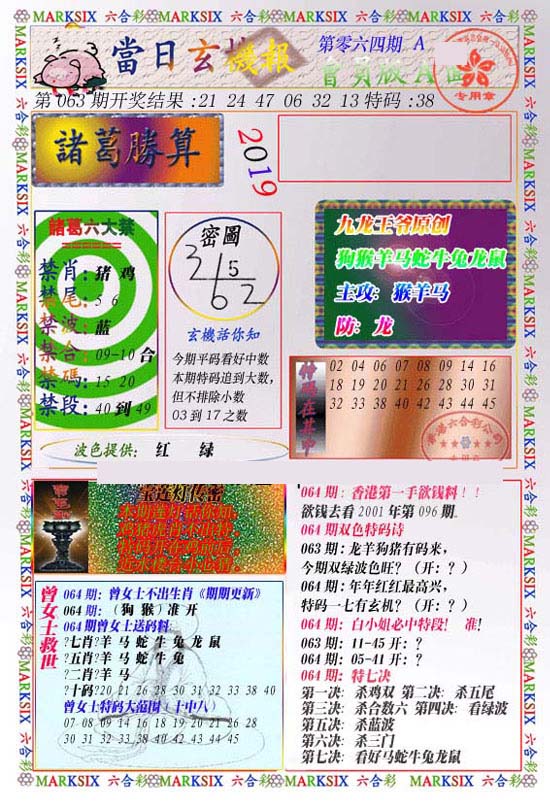 MARKSIX 六合彩 MARKSIX 六合彩 MARKSIX 六合彩 MARKSIX 六合彩 MARKSIX
當日玄機報
第零六四期 A
會員版A面
专用章
第 063 期开奖结果:21 24 47 06 32 13 特码:38
諸葛勝算
2019
諸葛六大禁
禁肖:猪 鸡
禁尾:5 6
禁波:蓝
禁合:09-10 合
禁碼:15 20
禁段:40 到 49
密圖
3 5
6 2
玄機話你知
今期平码看好中数
本期特码追到大数,
但不排除小数
03 到 17 之数
九龙王爷原创
狗猴羊马蛇牛兔龙鼠
主攻: 猴羊马
防: 龙
特码在其中
02 04 06 07 08 09 14 16
18 19 20 21 26 28 30 31
32 33 38 40 42 43 44 45
波色提供: 红 绿
宝莲灯传密
曾女士救世
064 期: 曾女士不出生肖《期期更新》
064 期: (狗 猴) 准 开
064 期曾女士送码料:
?七肖?羊 马 蛇 牛 兔 龙 鼠
?五肖?羊 马 蛇 牛 兔
?二肖?羊 马
?十码?20 21 26 28 30 31 32 33 38 40
曾女士特码大范围(十中八)
07 08 09 14 16 18 19 20 21 26 28
30 31 32 33 38 40 42 43 44 45
064 期: 香港第一手欲钱料!!
欲钱去看 2001 年第 096 期.
064 期双色特码诗
063 期: 龙羊狗猪有码来,
今期双绿波色旺? (开: ?)
064 期: 年年红红最高兴,
特码一七有玄机? (开: ?)
064 期: 白小姐必中特段! 准!
063 期: 11-45 开: ?
064 期: 05-41 开: ?
064 期: 特七决
第一决: 杀鸡双 第二决: 杀五尾
第三决: 杀合数六 第四决: 看绿波
第五决: 杀蓝波
第六决: 杀三门
第七决: 看好马蛇牛兔龙鼠
MARKSIX 六合彩 MARKSIX 六合彩 MARKSIX 六合彩 MARKSIX 六合彩 MARKSIX